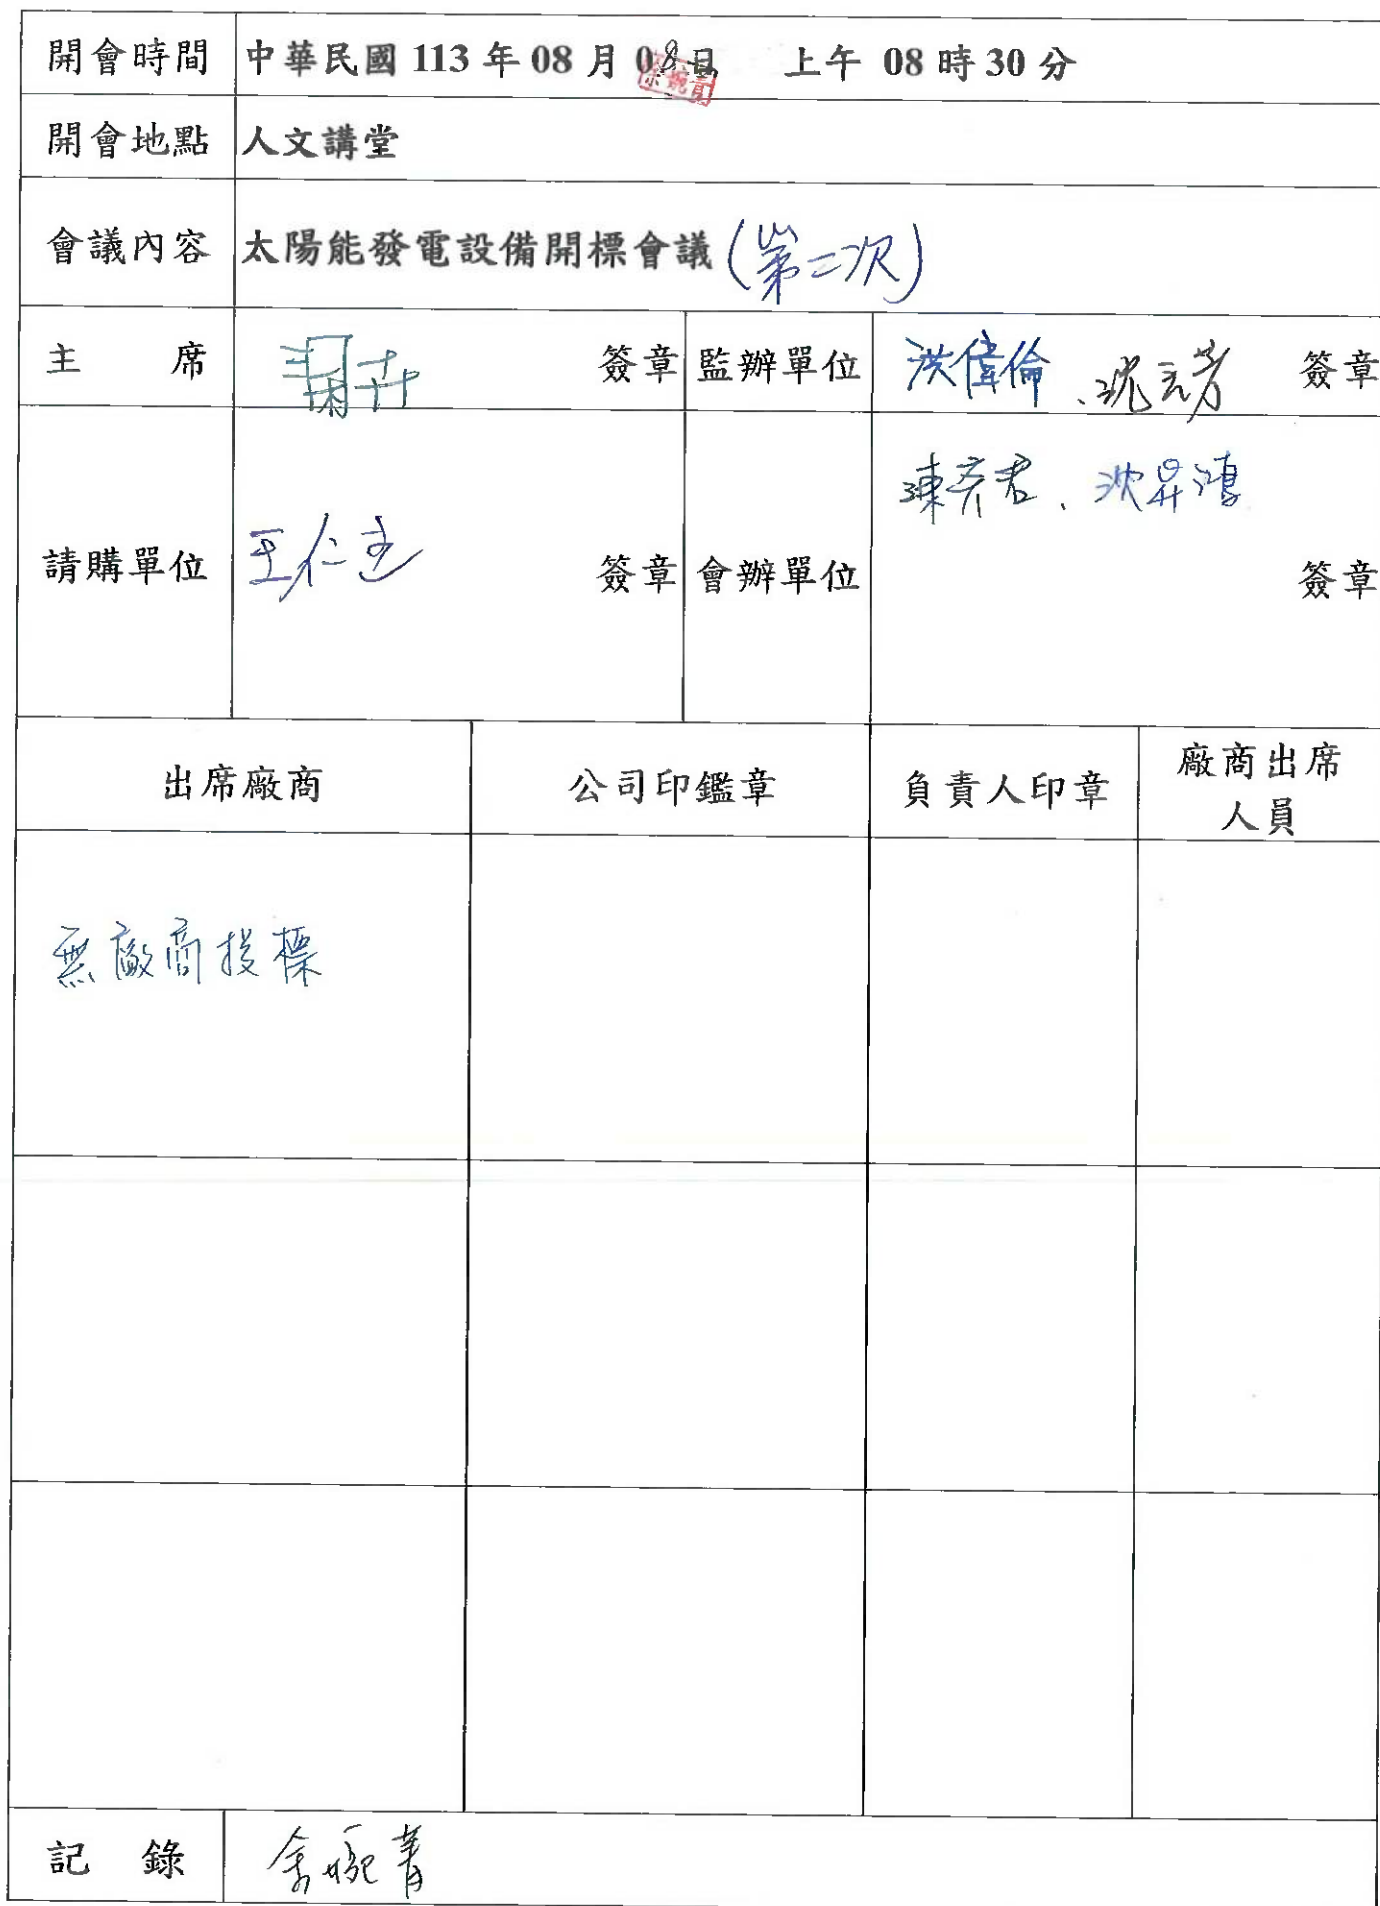 開會時間 中華民國 113 年 08 月 08 日 上午 08 時 30 分
開會地點 人文講堂
會議內容 太陽能發電設備開標會議(第二次)
主 席 簽章 監辦單位 洪偉倫、沈元芳 簽章
陳彥君、沈昇鴻
請購單位 王仁志 簽章 會辦單位 簽章
出席廠商 公司印鑑章 負責人印章 廠商出席
人員
無廠商投標
記 錄 余婉菁